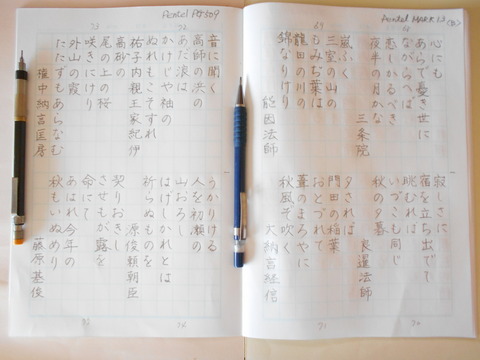 69
心にも
あらで憂き世に
ながらへば
恋しかるべき
夜半の月かな
三条院
嵐ふく
三室の山の
もみぢ葉は
龍田の川の
錦なりけり
能因法師
寂しさに
宿を立ち出でて
眺むれば
いづこも同じ
秋の夕暮
良暹法師
夕されば
門田の稲葉
おとづれて
葦のまろやに
秋風ぞ吹く
大納言経信
70
71
Pentel
72
73
音に聞く
高師の浜の
あだ浪は
かけじや袖の
ぬれもこそすれ
祐子内親王家紀伊
高砂の
尾の上の桜
咲きにけり
外山の霞
たたずもあらなむ
権中納言匡房
うかりける
人を初瀬の
山おろし
はげしかれとは
祈らぬものを
源俊頼朝臣
契りおきし
させもが露を
命にて
あはれ今年の
秋もいぬめり
藤原基俊
74
75